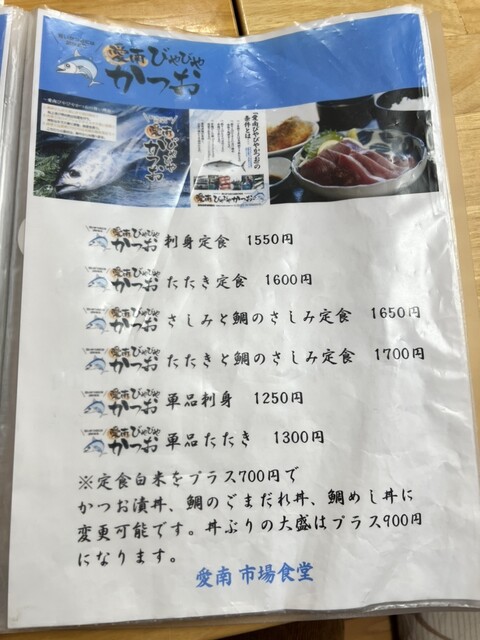 愛南びやびや
かつお
「愛南びやびやかつお」の
条件とは
愛南びやびや
かつお
愛南びやびやかつお 刺身定食 1550円
愛南びやびやかつお たたき定食 1600円
愛南びやびやかつお さしみと鯛のさしみ定食 1650円
愛南びやびやかつお たたきと鯛のさしみ定食 1700円
愛南びやびやかつお 単品刺身 1250円
愛南びやびやかつお 単品たたき 1300円
※定食白米をプラス700円で
かつお漬丼、鯛のごまだれ丼、鯛めし丼に
変更可能です。丼ぶりの大盛はプラス900円
になります。
愛南 市場食堂